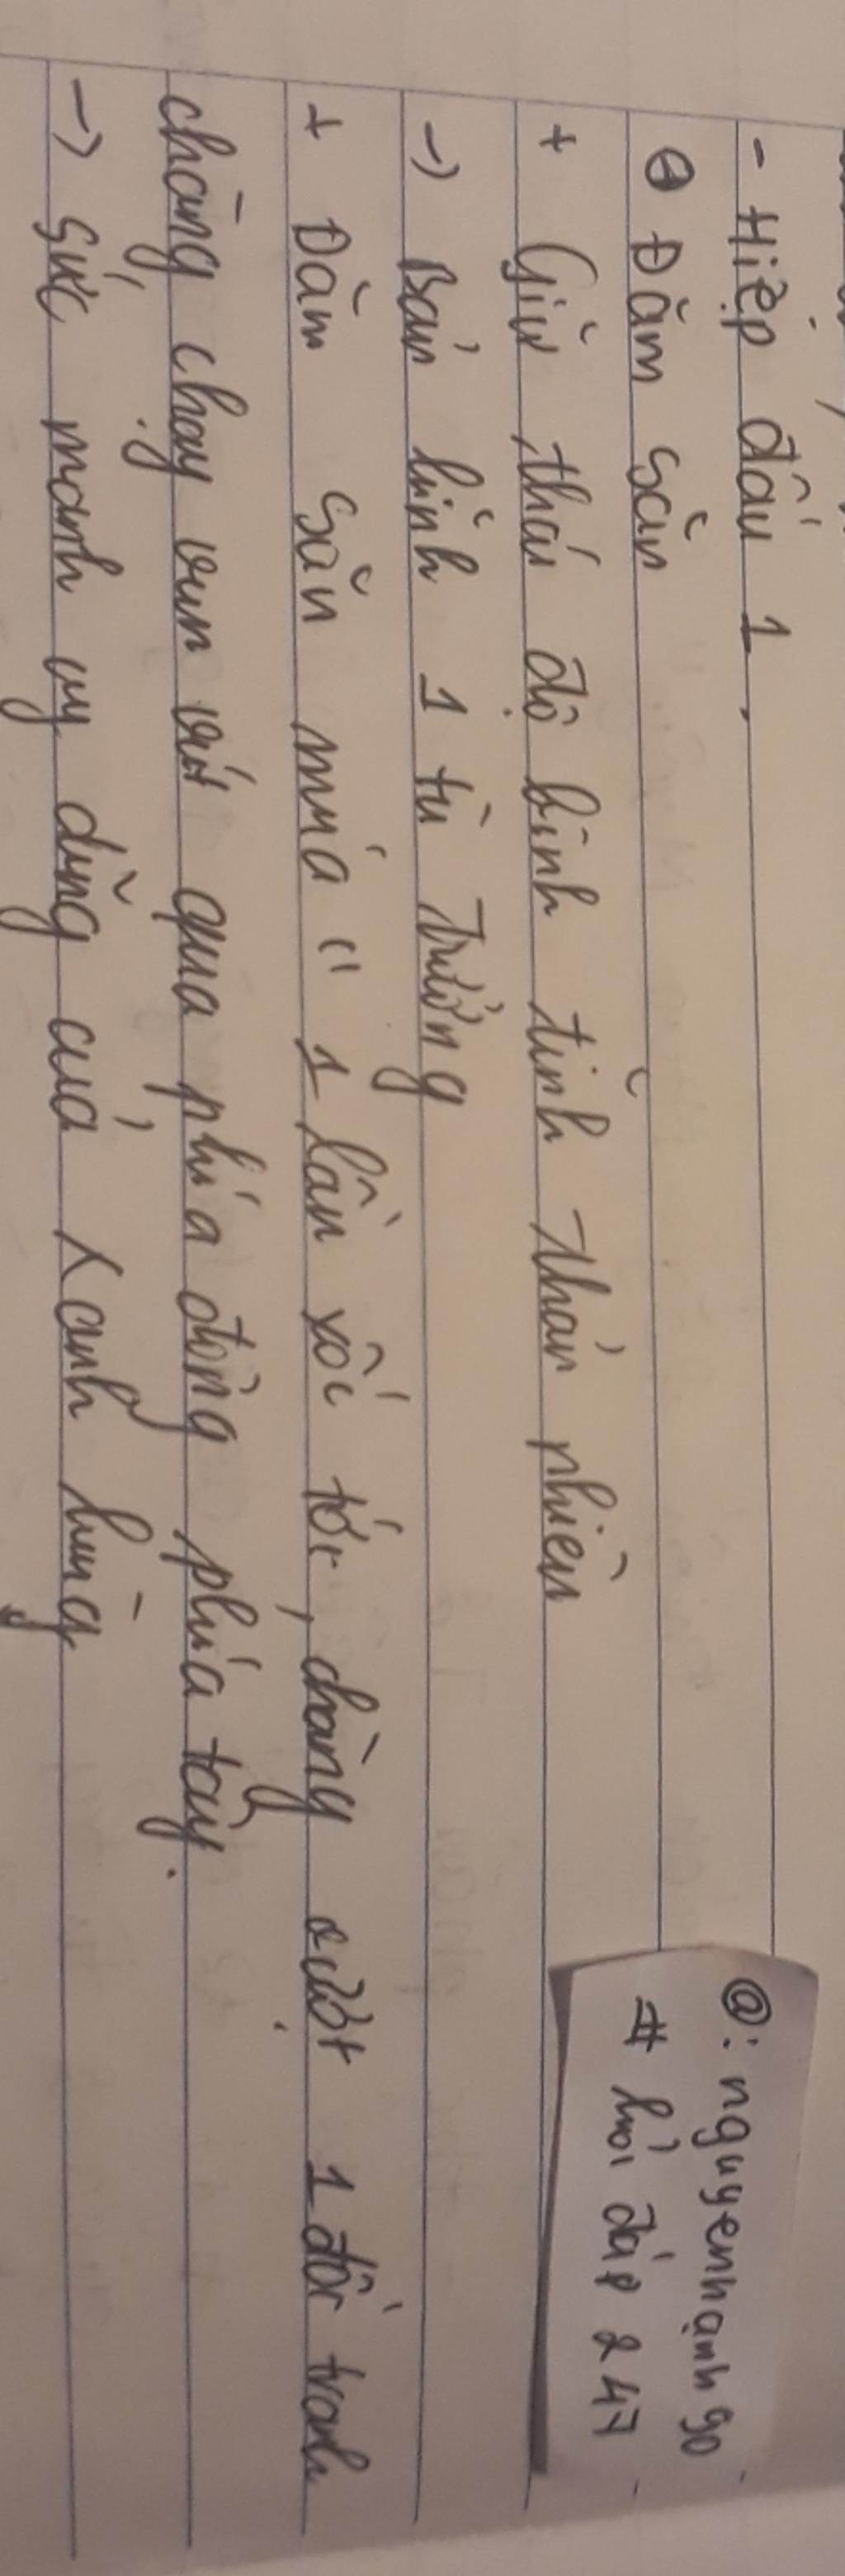 - Hiệp đấu 1.
⊖ Đăm Săn
+ Giữ thái độ bình tĩnh thản nhiên
-> Bản lĩnh 1 tù Trưởng
+ Đăm Săn múa " 1 lần xốc tới, chàng vượt 1 đồi tranh
chàng chạy vun vút qua phía đông phía tây.
-> Sức mạnh uy dũng của x anh hùng
@: nguyenhạnh90
# hỏi đáp 247